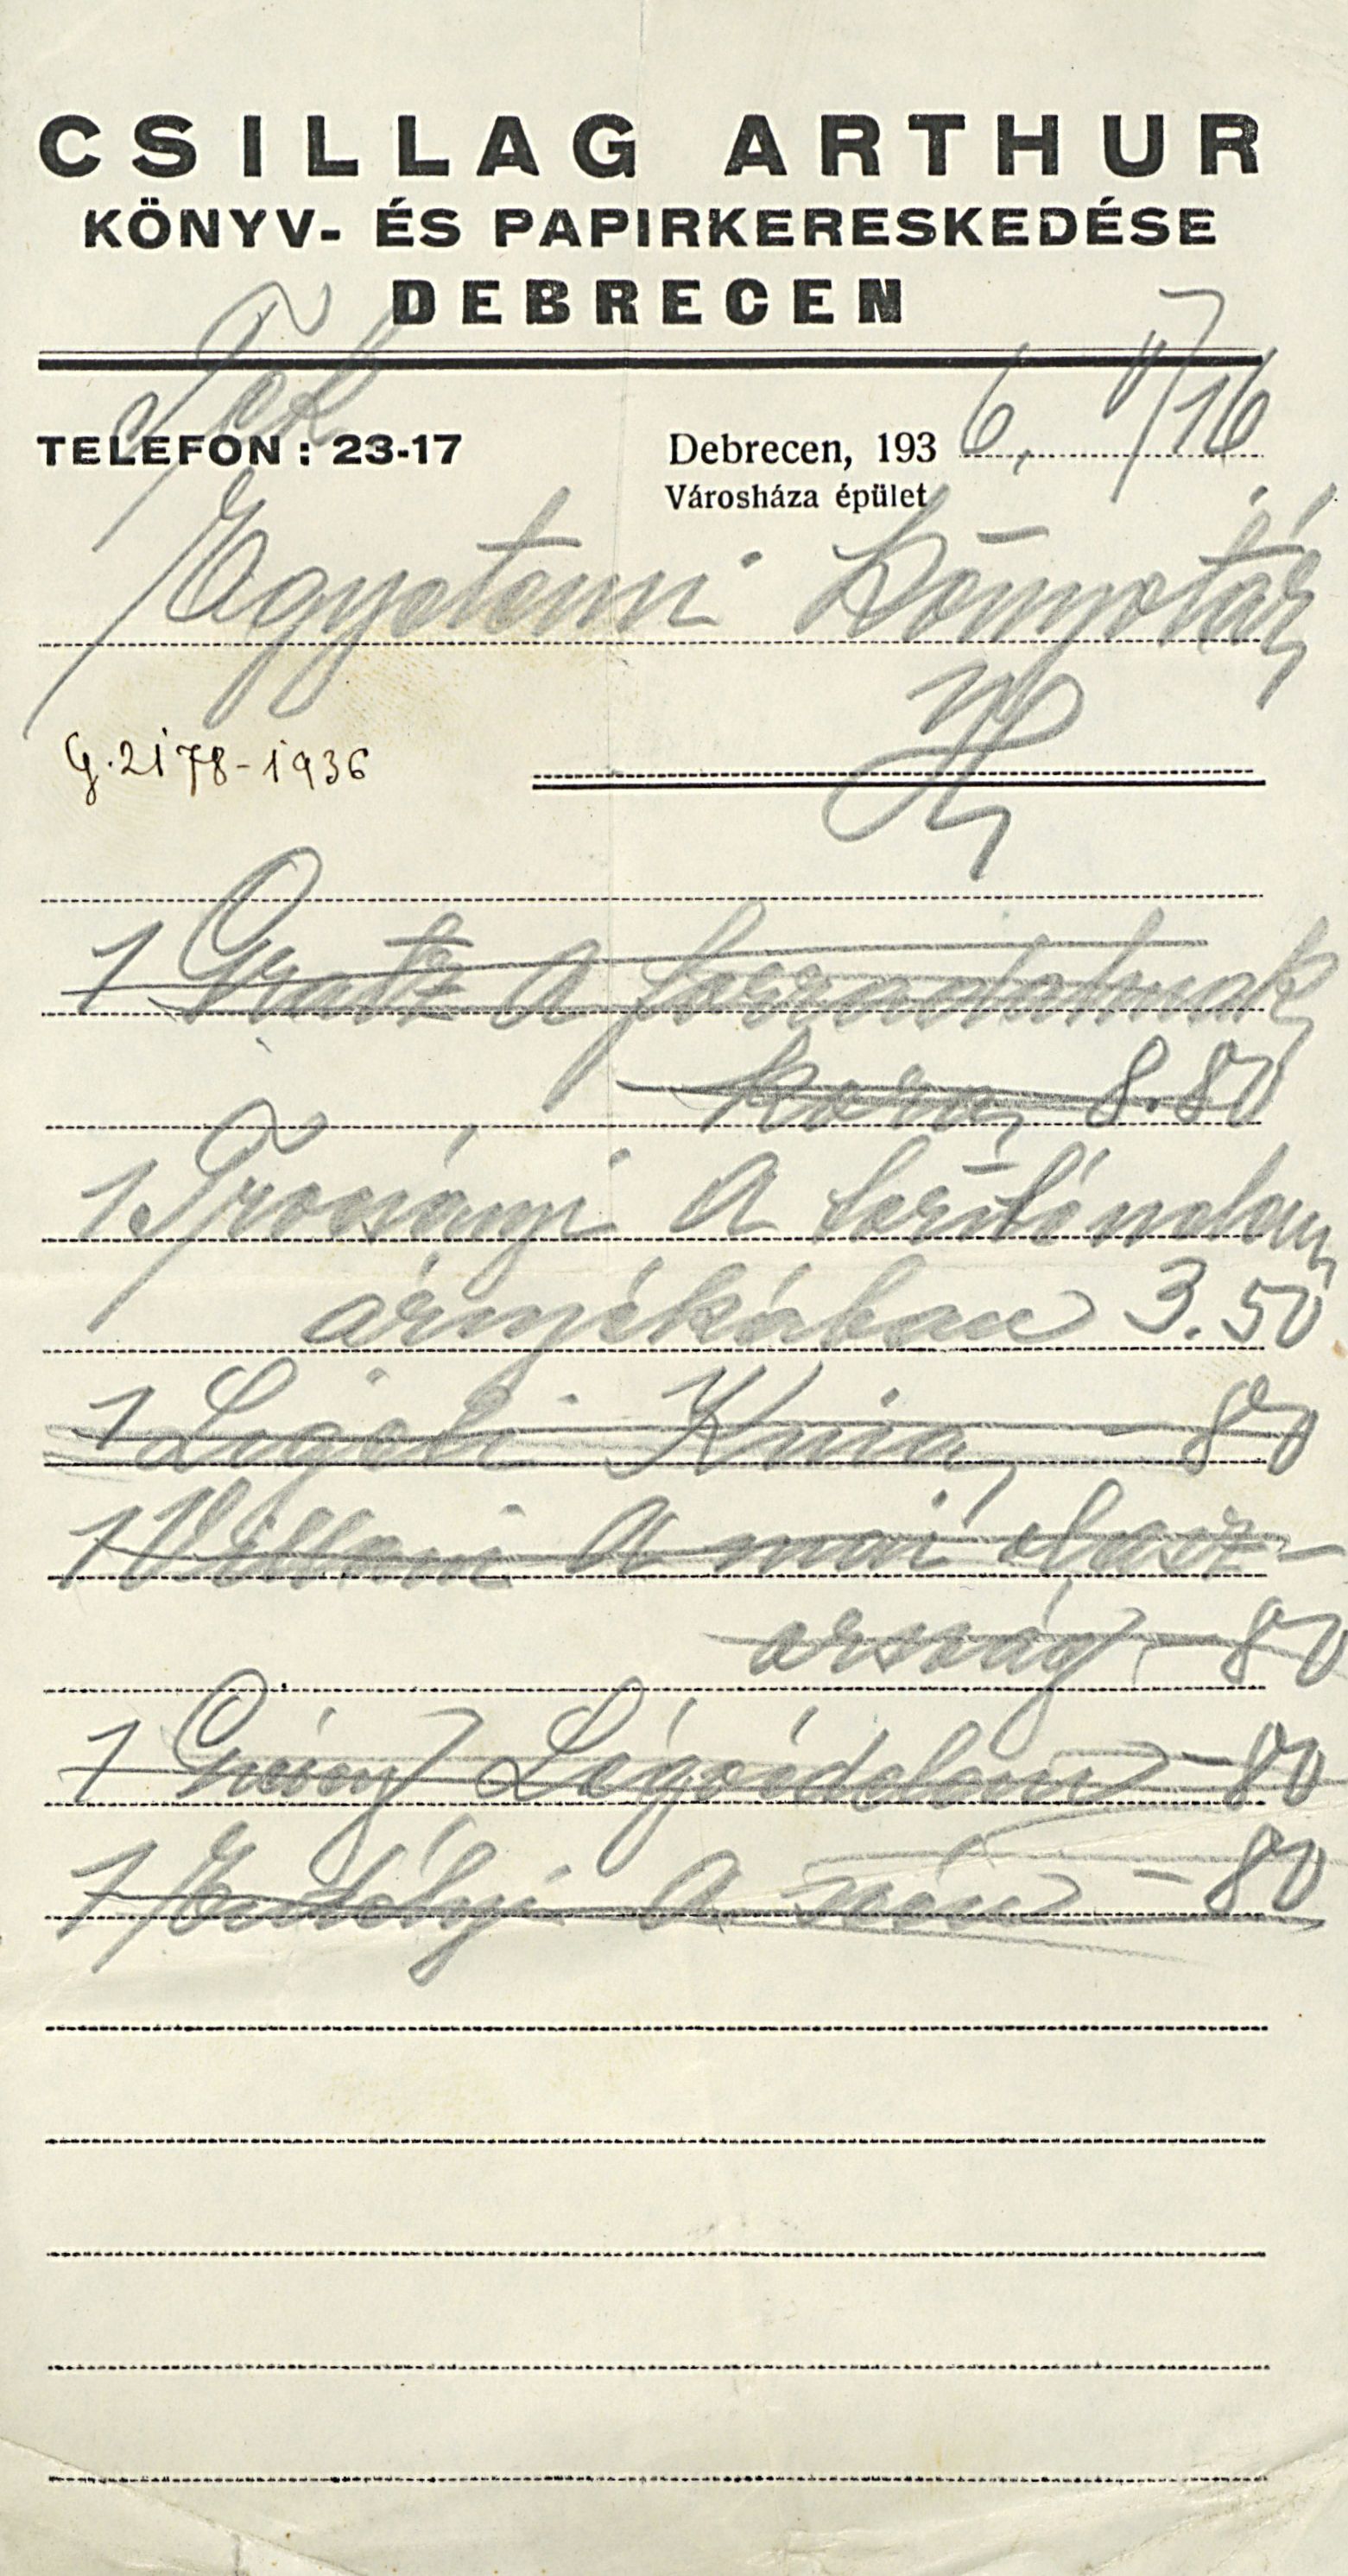 CSILLAG ARTHUR
KÖNYV- ÉS PAPIRKERESKEDÉSE
DEBRECEN
Tek
TELEFON: 23-17
Debrecen, 1936. V/16
Városháza épület
Egyetemi Könyvtár
H
G.2178-1936
1 Gratz A forradalmak
kora 8.80
1 Trocsányi A történelem
árnyékában 3.50
1 Ligeti Kina -80
1 Villani A mai olasz-
ország -80
1 Légvédelem -80
1 Erdélyi A -80